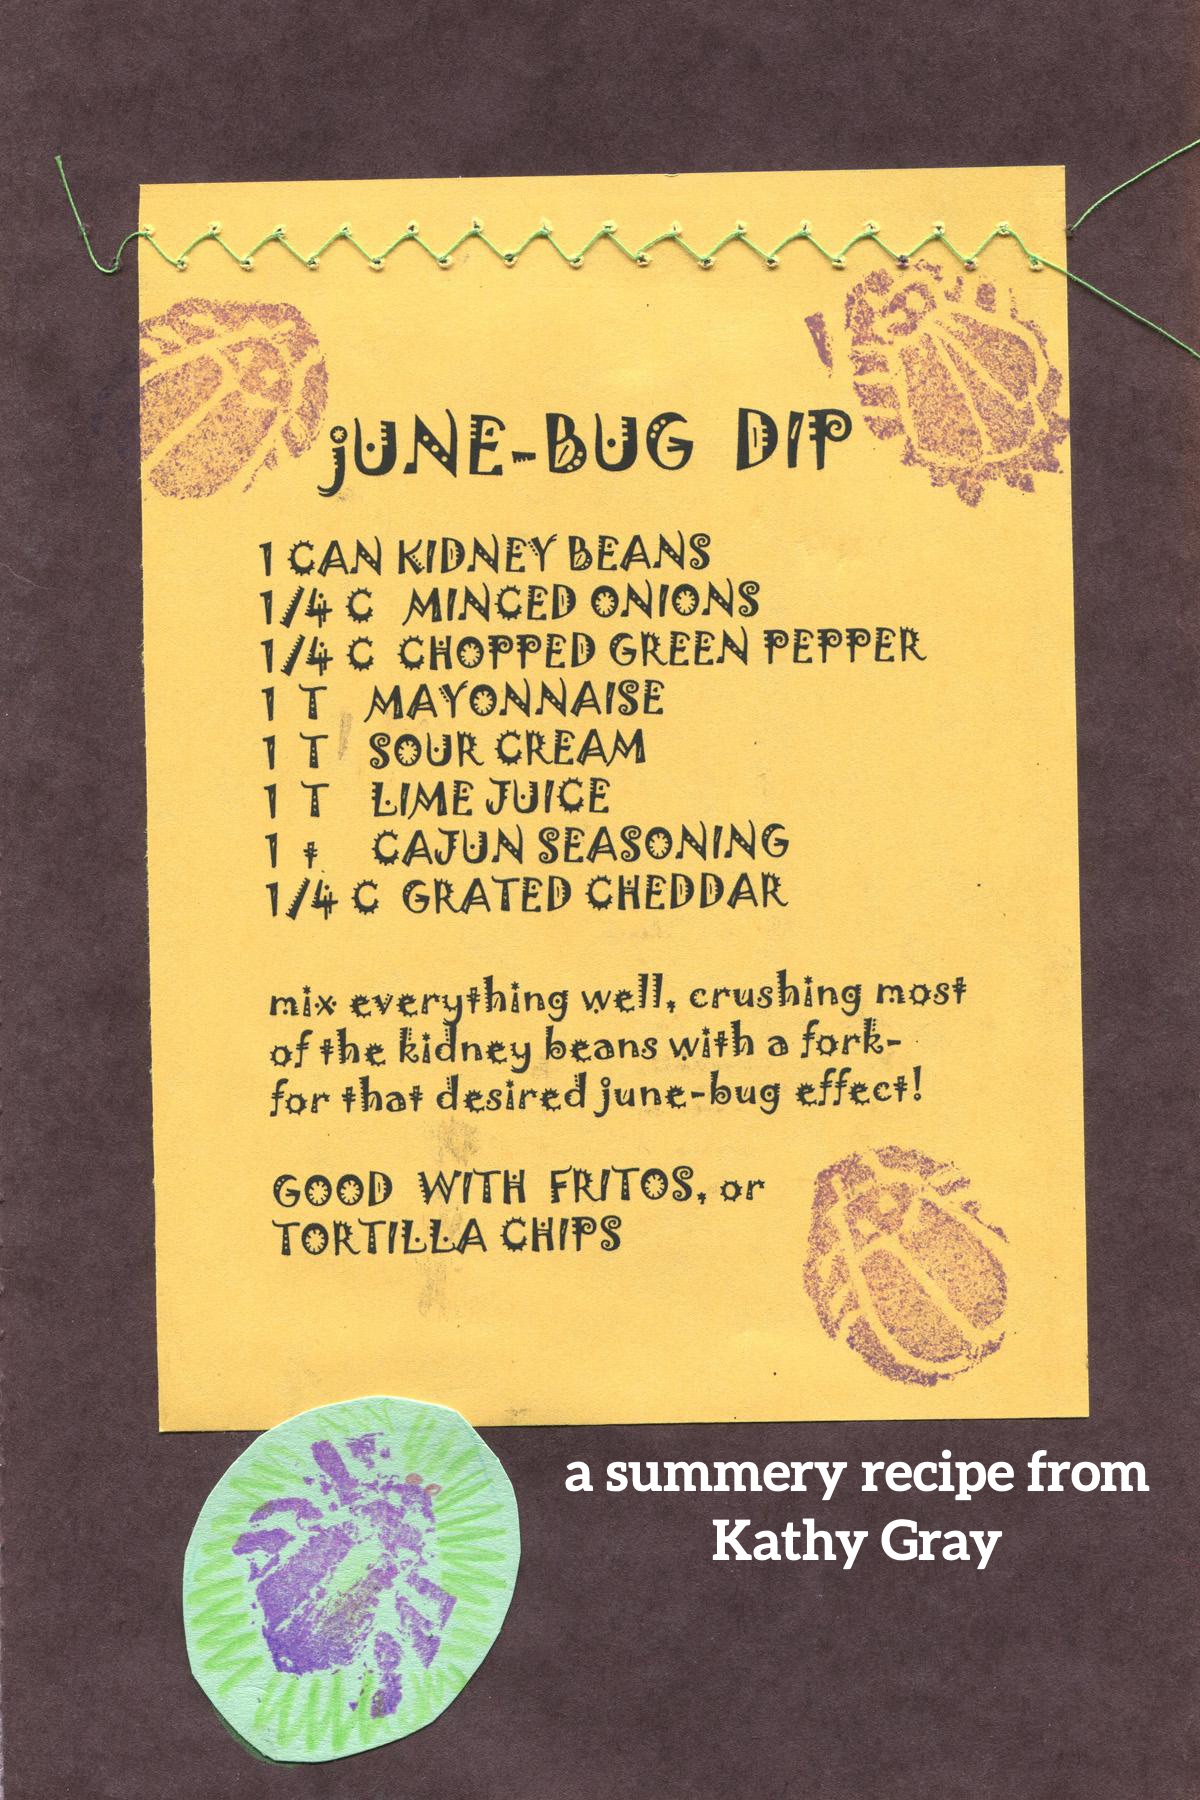 jUNE-BUG DIP
1 CAN KIDNEY BEANS
1/4 C MINCED ONIONS
1/4 C CHOPPED GREEN PEPPER
1 T MAYONNAISE
1 T SOUR CREAM
1 T LIME JUICE
1 t CAJUN SEASONING
1/4 C GRATED CHEDDAR
mix everything well, crushing most
of the kidney beans with a fork-
for that desired june-bug effect!
GOOD WITH FRITOS, or
TORTILLA CHIPS
a summery recipe from
Kathy Gray